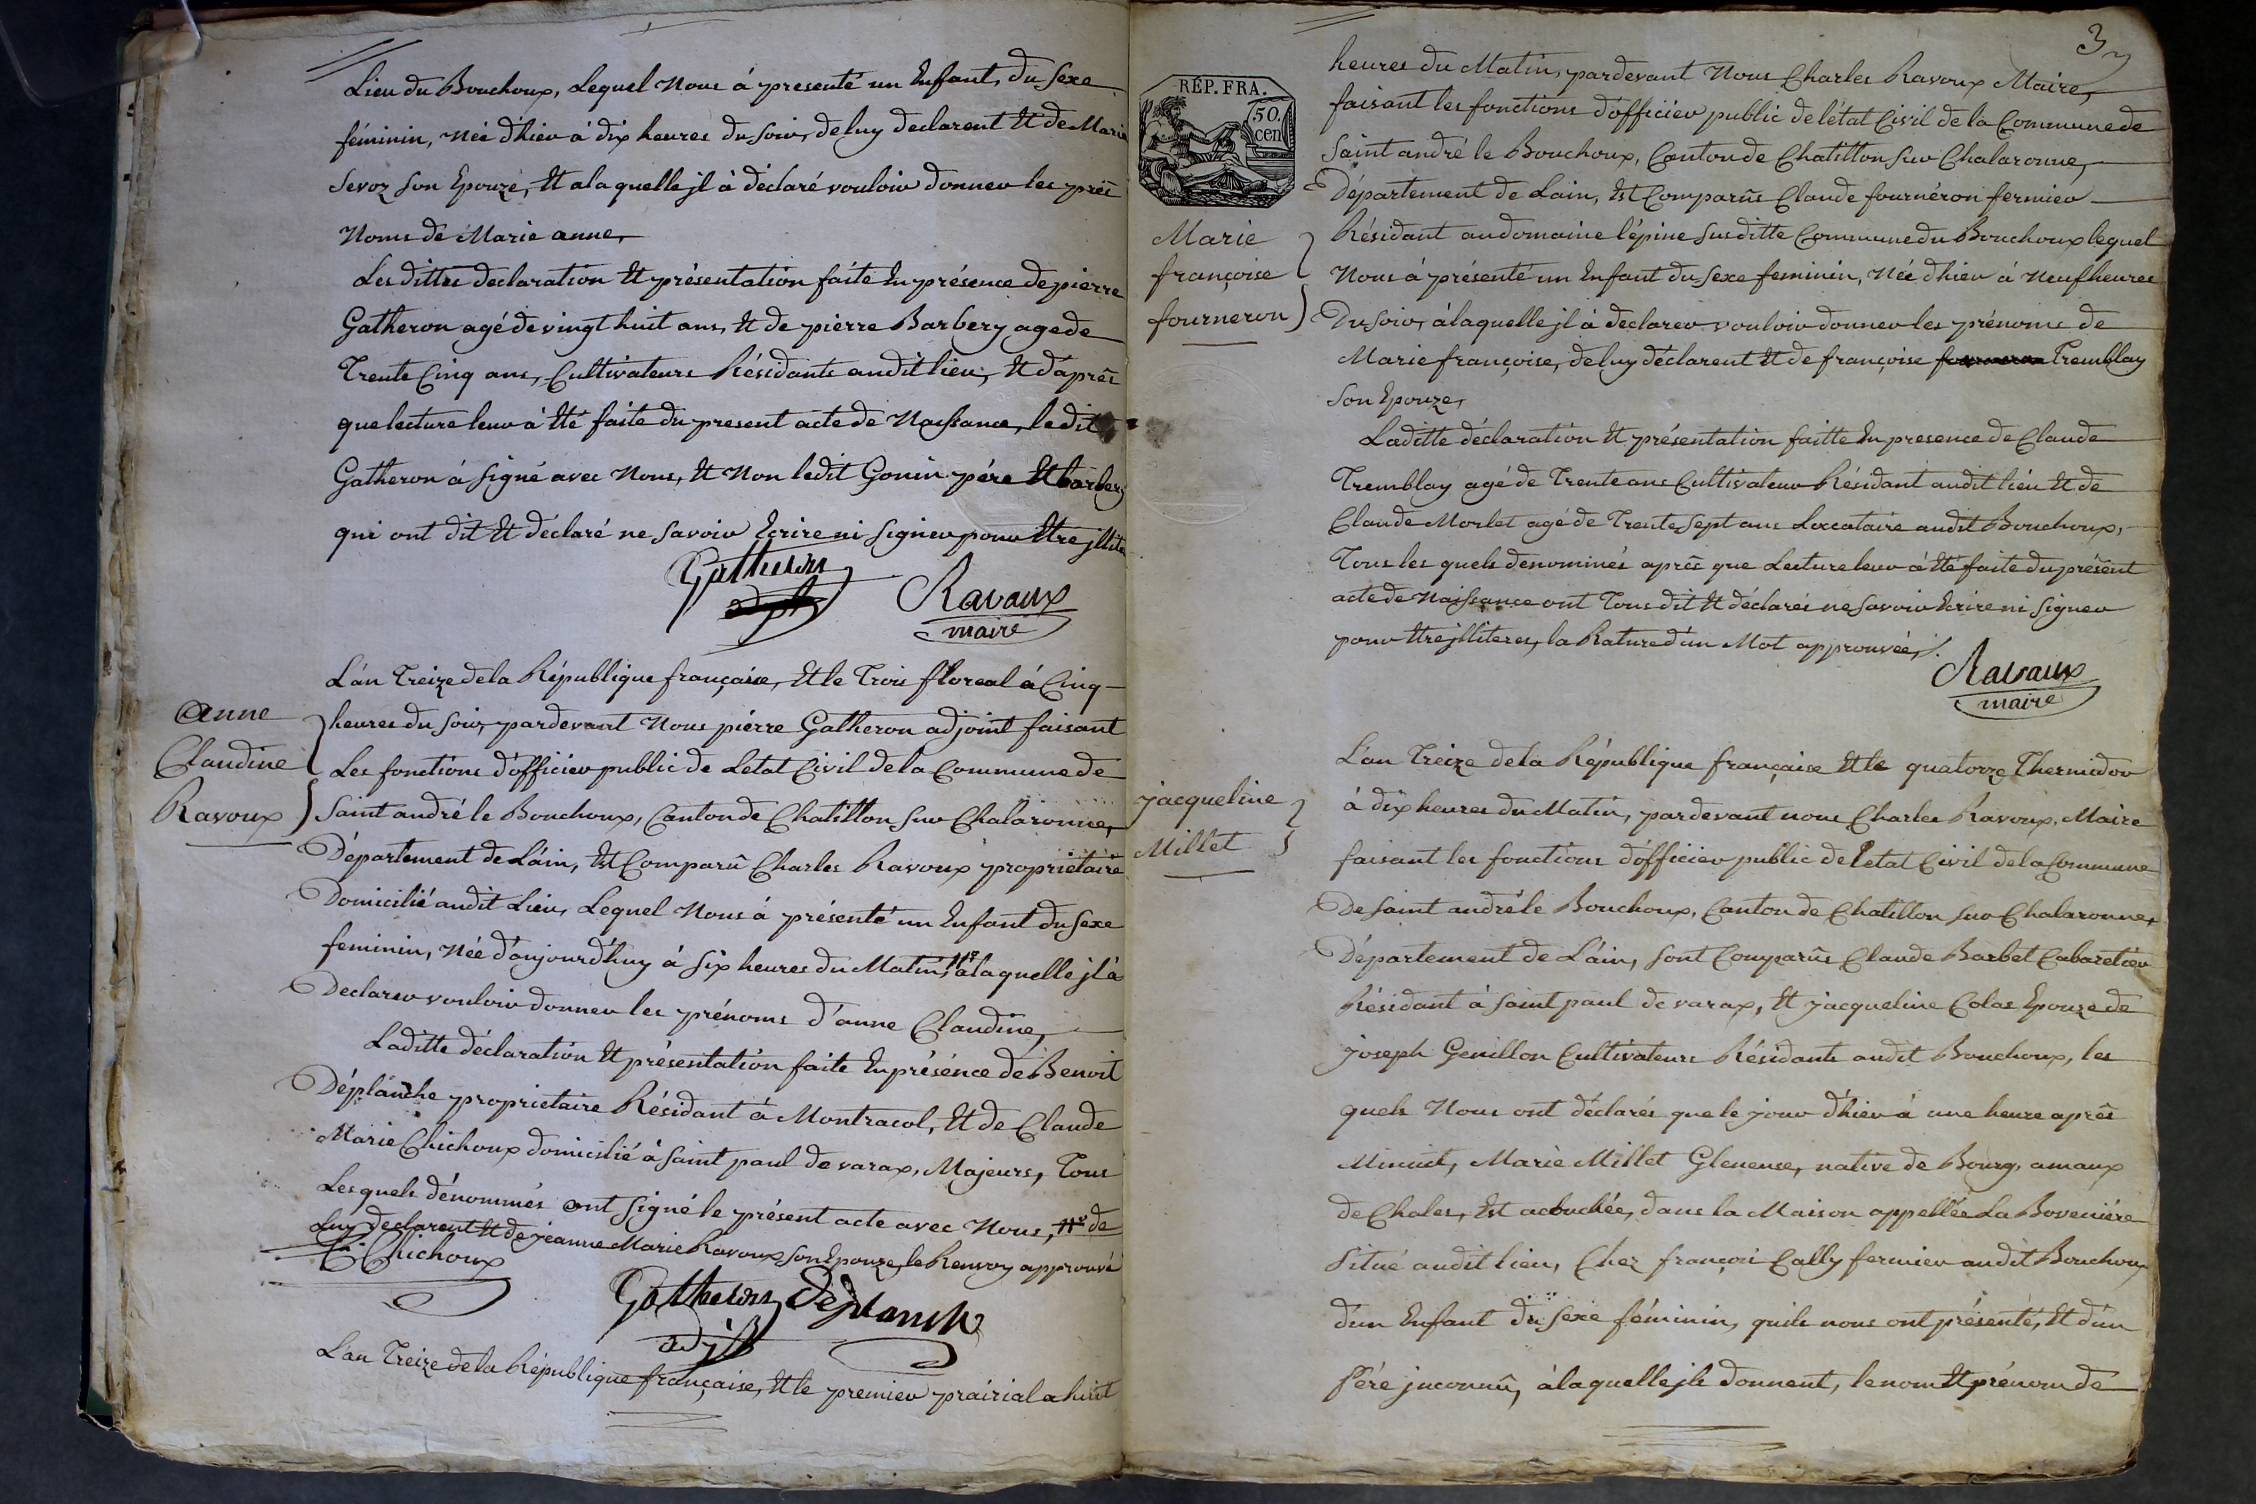 Lieu du Bouchoux, Lequel Nous à presenté un Enfant, du Sexe
féminin, née d'hier à dix heures du soir, de luy declarent Et de Marie
Sevoz son Epouze, Et a laquelle jl à déclaré vouloir donner les pré-
Noms de Marie anne,
Les dittes declaration Et présentation faite En présence de pierre
Gatheron agé de vingt huit ans, Et de pierre Barbery age de
Trente Cinq ans, Cultivateurs Résidants audit lieu, Et d'après
que lecture leur à Eté faite du present acte de Naissance, ledit
Gatheron à signé avec Nous, Et Non ledit Gonin pére Et barbery
qui ont dit Et déclaré ne savoir Ecrire ni signer pour Etre jllité
Gatheron
adjt
Ravaux
maire
anne
Claudine
Ravoux
L'an Treize de la République française, Et le Trois floreal à Cinq
heures du soir, pardevant Nous piérre Gatheron adjoint faisant
Les fonctions d'officier public de Letat Civil de la Commune de
Saint andré le Bouchoux, Canton de Chatillon sur Chalaronne,
Département de L'ain, Est Comparû Charles Ravoux proprietaire
Domicilié audit Lieu, Lequel Nous à présenté un Enfant du Sexe
feminin, Née d'aujourd'huy à six heures du Matin, à laquelle jl à
Declarer vouloir donner les prénoms d'anne Claudine,
Laditte déclaration Et présentation faite En présence de Benoit
Déplanche proprietaire Résidant à Montracol, Et de Claude
Marie Chichoux domicilié à saint paul de varax, Majeurs, Tous
Lesquels dénommés ont signé le présent acte avec Nous, de
Luy declarent Et de jeanne Marie Ravoux son Epouze, le Renvoy approuvé
Chichoux
Gatheron
adjt
Déplanche
L'an Treize de la République française, Et le premier prairial a huit
3
RÉP. FRA.
50.
cen
Marie
françoise
fourneron
heures du Matin, pardevant Nous Charles Ravoux Maire,
faisant les fonctions d'officier public de l'état Civil de la Commune de
Saint andré le Bouchoux, Canton de Chatillon sur Chalaronne,
Département de Lain, Est Comparûs Claude fournéron fermier
Résidant au domaine l'épine susditte Commune du Bouchoux lequel
Nous à présenté un Enfant du Sexe feminin, Née d'hier à Neuf heures
Du soir, à laquelle jl à declarer vouloir donner les prénoms de
Marie françoise, de luy déclarent Et de françoise Tremblay
Son Epouze,
Laditte déclaration Et présentation faitte En presence de Claude
Tremblay agé de Trente ans Cultivateur Résidant audit lieu Et de
Claude Morlet agé de Trente sept ans Loccataire audit Bouchoux,
Tous les quels denominés après que Lecture leur à Eté faite du présent
acte de Naissance ont Tous dit Et déclarés ne savoir Ecrire ni signer
pour Etre jlliteres, la Rature d'un Mot approuvée,
Ravaux
maire
jacqueline
Millet
L'an Treize de la République française Et le quatorze Thermidor
à dix heures du Matin, pardevant nous Charles Ravoux, Maire
faisant les fonctions d'officier public de l'etat Civil de la Commune
De saint andré le Bouchoux, Canton de Chatillon sur Chalaronne,
Département de L'ain, sont Comparûs Claude Barbet Cabaretier
Résidant à saint paul de varax, Et jacqueline Colas Epouze de
joseph Genillon Cultivateurs Résidants audit Bouchoux, les
quels Nous ont déclarés que le jour d'hier à une heure après
Minuit, Marie Millet Gleneuse, native de Bourg, amaux
de Chales, Est acouchée, dans la Maison appellée La Boveniére
situé audit lieu, Chez françois Cally fermier audit Bouchoux
d'un Enfant du Sexe féminin, quils nous ont présenté, Et d'un
Pére jnconnû, à laquelle jls donnent, le nom Et prénom de